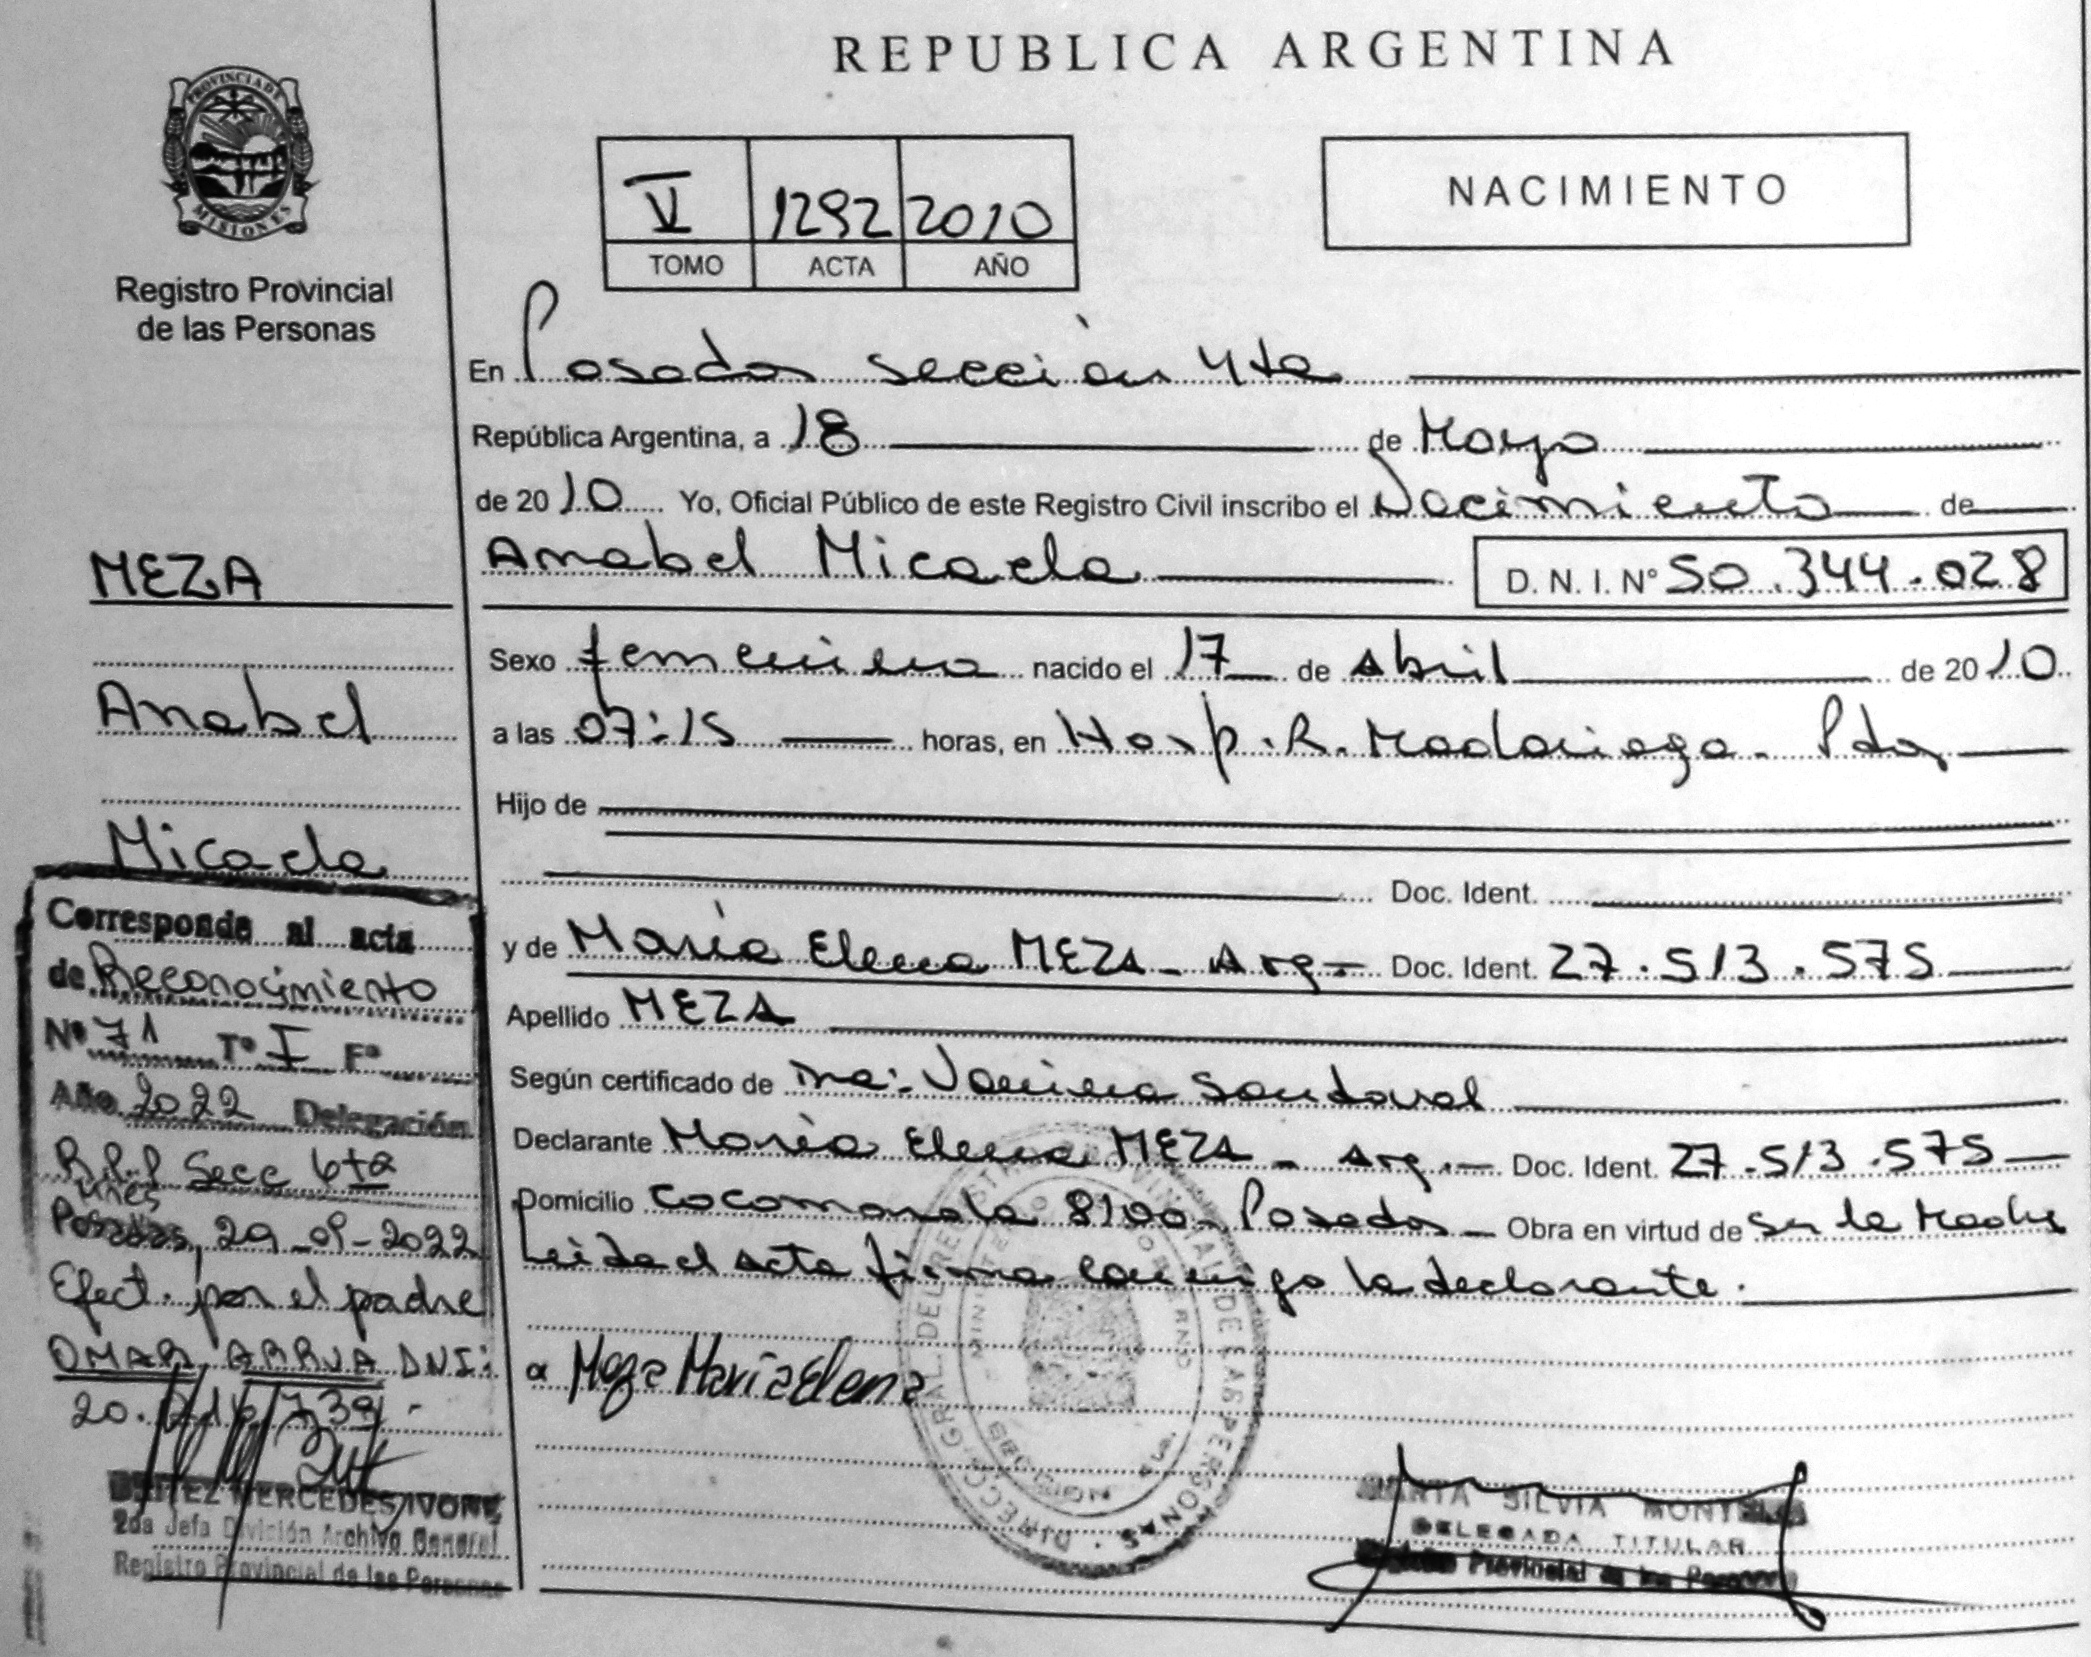 REPUBLICA ARGENTINA
PROVINCIA DE
MISIONES
Registro Provincial
de las Personas
V 1292 2010
TOMO ACTA AÑO
NACIMIENTO
En Posadas sección 4ta
República Argentina, a 18 de Mayo
de 2010 Yo, Oficial Público de este Registro Civil inscribo el Nacimiento de
Anabel Micaela D. N. I. N° 50.344.028
Sexo femenino nacido el 17 de Abril de 2010
a las 07:15 horas, en Hosp. R. Madariaga - Pdas
Hijo de
Doc. Ident.
y de María Elena MEZA - Arg.- Doc. Ident. 27.513.575
Apellido MEZA
Según certificado de Yanina Sandoval
Declarante María Elena MEZA - Arg.- Doc. Ident. 27.513.575
Domicilio Cocomarola 8100 - Posadas - Obra en virtud de Ser la Madre
Leida el acta firma conmigo la declarante.
Meza María Elena
MEZA
Anabel
Micaela
Corresponde al acta
de Reconocimiento
N° 71 T° I F°
Año 2022 Delegación
R.P.P Secc 6ta
Posadas, 29-09-2022
Efect. por el padre
OMAR ARRUA DNI:
20.
BENITEZ MERCEDES IVONE
2da Jefa División Archivo General
Registro Provincial de las Personas
DIRECC. GRAL. DEL REGISTRO PROVINCIAL DE LAS PERSONAS
MINISTERIO GOBIERNO
MARTA SILVIA
DELEGADA TITULAR
Registro Provincial de las Personas